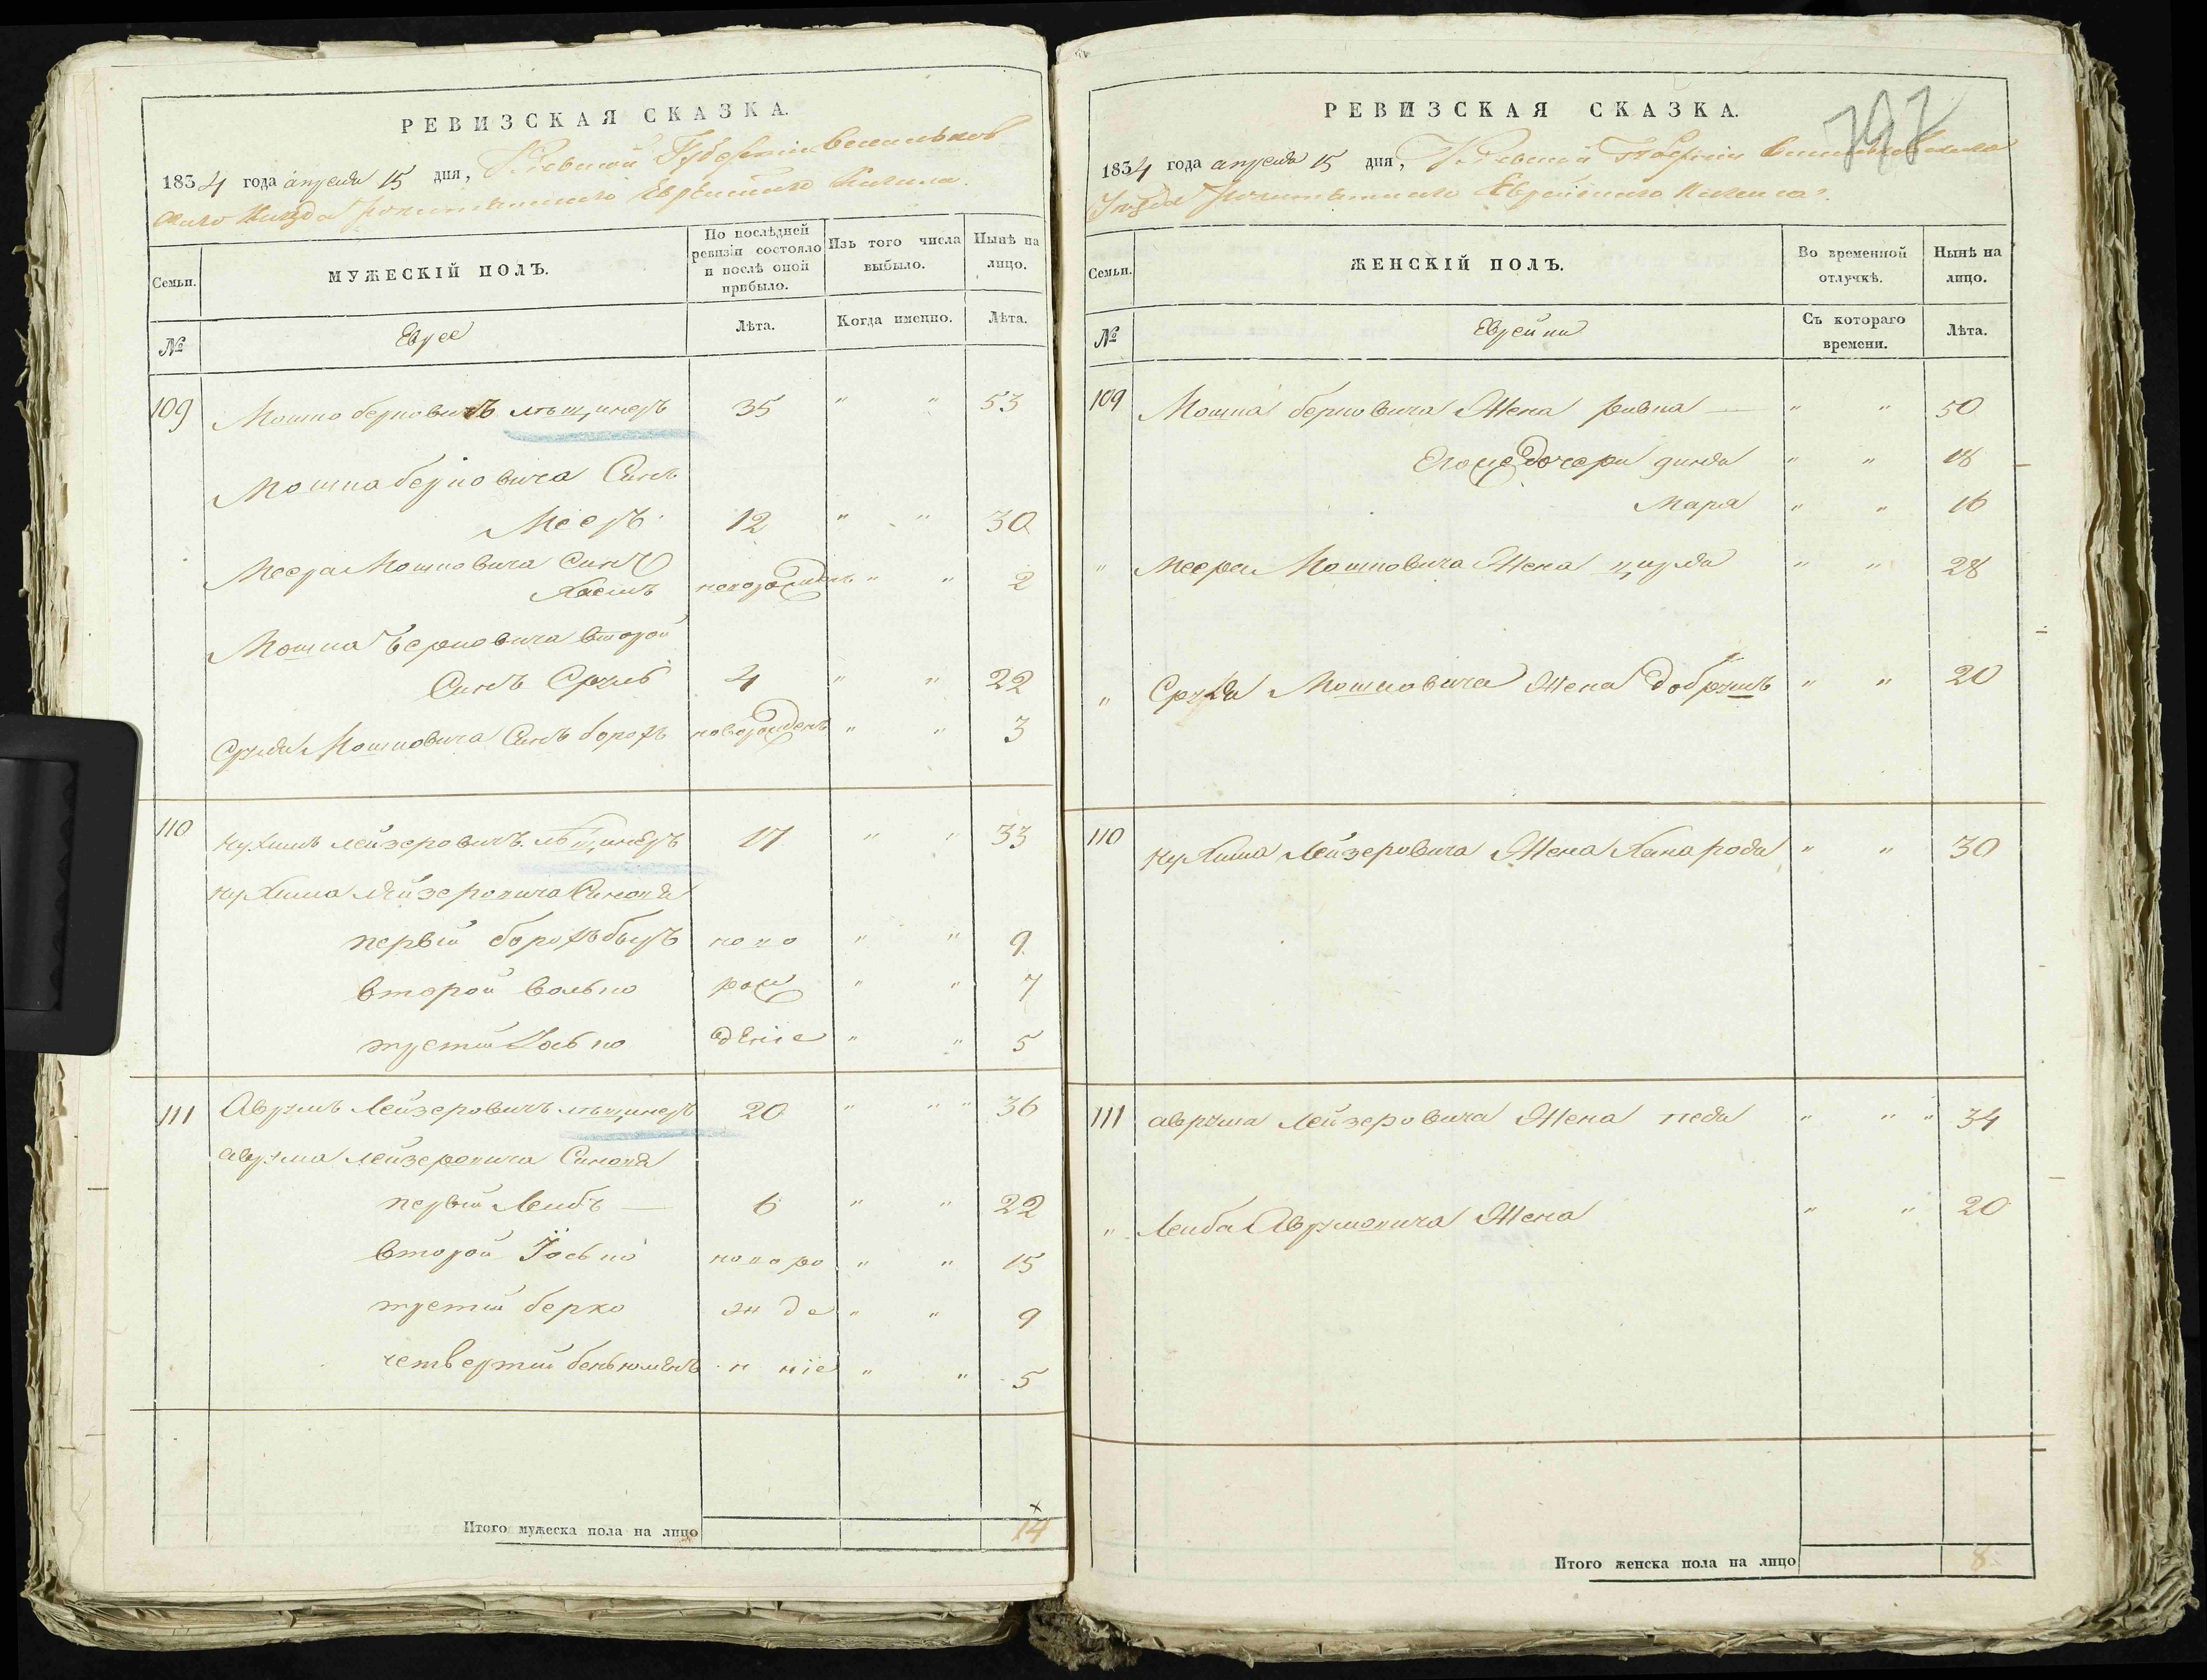 РЕВИЗСКАЯ СКАЗКА.
1834 года апреля 15 дня, Киевской Губернии Васильков
скаго уезда рокитянского Еврейского Кагала
Семьи. МУЖЕСКІЙ ПОЛЪ. По послѣдней ревизіи состояло и послѣ оной прибыло. Изъ того числа выбыло. Нынѣ на лицо.
№ Еврее Лѣта. Когда именно. Лѣта.
109 Мошко берковичъ лѣщинеръ 35 " " 53
Мошка берковича Синъ
Меєръ 12 " " 30
Меєра Мошковича Синъ
Хаемъ новорожденъ " " 2
Мошка Берковича второй
Синъ Срулъ 4 " " 22
Срула Мошковича Синъ борохъ новорожденъ " " 3
110 нухимъ лейзеровичъ лѣщинеръ 17 " " 33
нухима лейзеровича Синовя
первій борохъ беръ ново " " 9
второй волько рож " " 7
третій Іосько деніе " " 5
111 Аврумъ Лейзеровичъ лѣщинеръ 20 " " " 36
аврума лейзеровича Синовя
первій Лейбъ — 6 " " 22
второй Іосько новоро " " 15
третій берко ж де " " 9
четвертій беньюминъ н ніе " " 5
Итого мужеска пола на лицо 14
797
РЕВИЗСКАЯ СКАЗКА.
1834 года апреля 15 дня, Киевской Губернии Васильковскаго
уезда рокитянского Еврейского Кагала.
Семьи. ЖЕНСКІЙ ПОЛЪ. Во временной отлучкѣ. Нынѣ на лицо.
№ Еврейки Съ котораго времени. Лѣта.
109 Мошка берковича Жена ривка — " " 50
Егоже дочери динда " " 18
Мара " " 16
" Меєра Мошковича Жена цирля " " 28
" Срула Мошковича Жена добришъ " " 20
110 нухима Лейзеровича Жена Ханарода " " 30
111 аврума Лейзеровича Жена педя " " " 34
" Лейба Аврумовича Жена " " 20
Итого женска пола на лицо 8